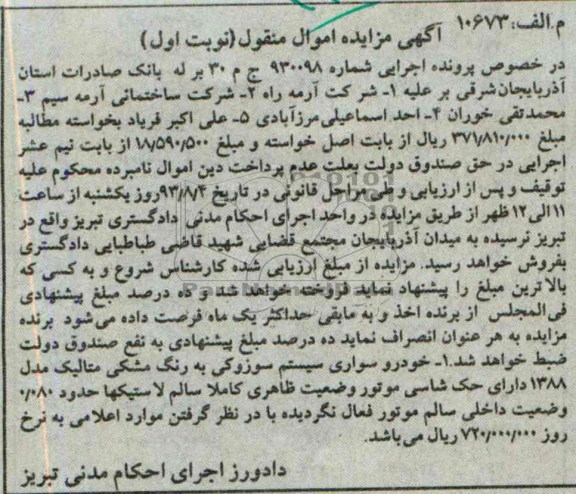 م.الف:۱۰۶۷۳
آگهی مزایده اموال منقول(نوبت اول)
در خصوص پرونده اجرایی شماره ۹۳۰۰۹۸ ج م ۳۰ بر له بانک صادرات استان
آذربایجان‌شرقی بر علیه ۱- شرکت آرمه راه ۲- شرکت ساختمانی آرمه سیم ۳-
محمدتقی خوران ۴- احد اسماعیلی‌مرزآبادی ۵- علی اکبر فریاد بخواسته مطالبه
مبلغ ۳۷۱/۸۱۰/۰۰۰ ریال از بابت اصل خواسته و مبلغ ۱۸/۵۹۰/۵۰۰ از بابت نیم عشر
اجرایی در حق صندوق دولت بعلت عدم پرداخت دین اموال نامبرده محکوم علیه
توقیف و پس از ارزیابی و طی مراحل قانونی در تاریخ ۹۳/۸/۴روز یکشنبه از ساعت
۱۱الی۱۲ ظهر از طریق مزایده در واحد اجرای احکام مدنی دادگستری تبریز واقع در
تبریز نرسیده به میدان آذربایجان مجتمع قضایی شهید قاضی طباطبایی دادگستری
بفروش خواهد رسید. مزایده از مبلغ ارزیابی شده کارشناس شروع و به کسی که
بالا ترین مبلغ را پیشنهاد نماید فروخته خواهد شد و ده درصد مبلغ پیشنهادی
فی‌المجلس از برنده اخذ و به مابقی حداکثر یک ماه فرصت داده می‌شود برنده
مزایده به هر عنوان انصراف نماید ده درصد مبلغ پیشنهادی به نفع صندوق دولت
ضبط خواهد شد.۱- خودرو سواری سیستم سوزوکی به رنگ مشکی متالیک مدل
۱۳۸۸ دارای حک شاسی موتور وضعیت ظاهری کاملا سالم لاستیکها حدود ۰/۰۸۰
وضعیت داخلی سالم موتور فعال نگردیده با در نظر گرفتن موارد اعلامی به نرخ
روز ۷۲۰/۰۰۰/۰۰۰ ریال می‌باشد.
دادورز اجرای احکام مدنی تبریز